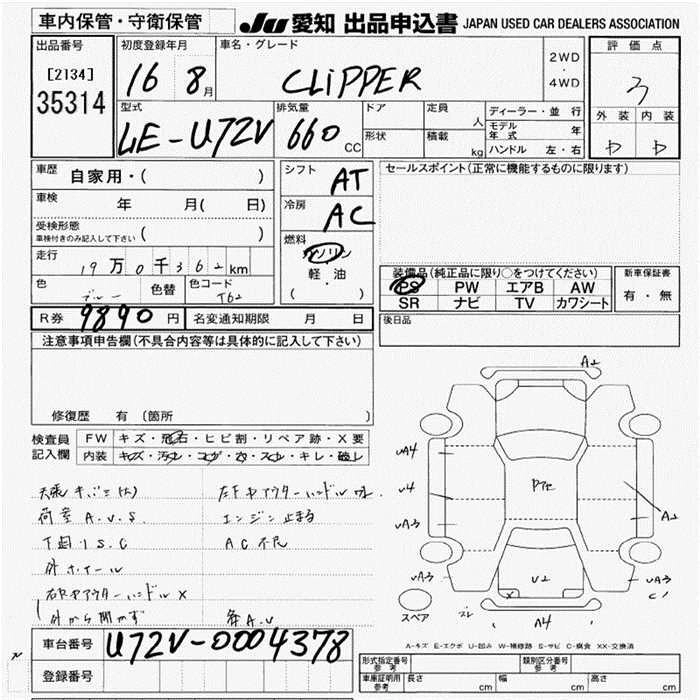 車内保管・守衛保管
JU 愛知 出品申込書 JAPAN USED CAR DEALERS ASSOCIATION
出品番号 初度登録年月 車名・グレード 2WD ・ 4WD 評価点
[2134] 35314 16 8月 CLiPPER 3
外装 内装
型式 排気量 ドア 定員 人 ディーラー・並行
LE-U72V 660 CC 形状 積載 kg モデル年式 年
ハンドル 左・右
車歴 自家用・( ) シフト AT セールスポイント(正常に機能するものに限ります)
車検 年 月( 日) 冷房 AC
受検形態 車検付きのみ記入して下さい ( ) 燃料 ガソリン
走行 19万0千362km 軽・油 ( )
装備品(純正品に限り○をつけてください) 新車保証書
色 ブルー 色替 色コード T62
PS PW エアB AW 有・無
SR ナビ TV カワシート
R券 9890円 名変通知期限 月 日 後日品
注意事項申告欄(不具合内容等は具体的に記入して下さい)
修復歴 有 (箇所
検査員記入欄 FW キズ・飛石・ヒビ割・リペア跡・X要
内装 キズ・汚れ・コゲ・穴・スレ・キレ・破れ
荷室 A.U.S. エンジン止まる
下回りS.C AC不良
外から開かず 各A.U
A2
UA4
U4
UA3
A2
UA3
U2
UA3
C1
X
スペア
A4
A-キズ E-エクボ U-凹み W-補修跡 S-サビ C-腐食 XX-交換済
車台番号 U72V-0004378
登録番号
型式指定番号 参考 類別区分番号 参考
車庫証明用 参考 長さ cm 幅 cm 高さ cm